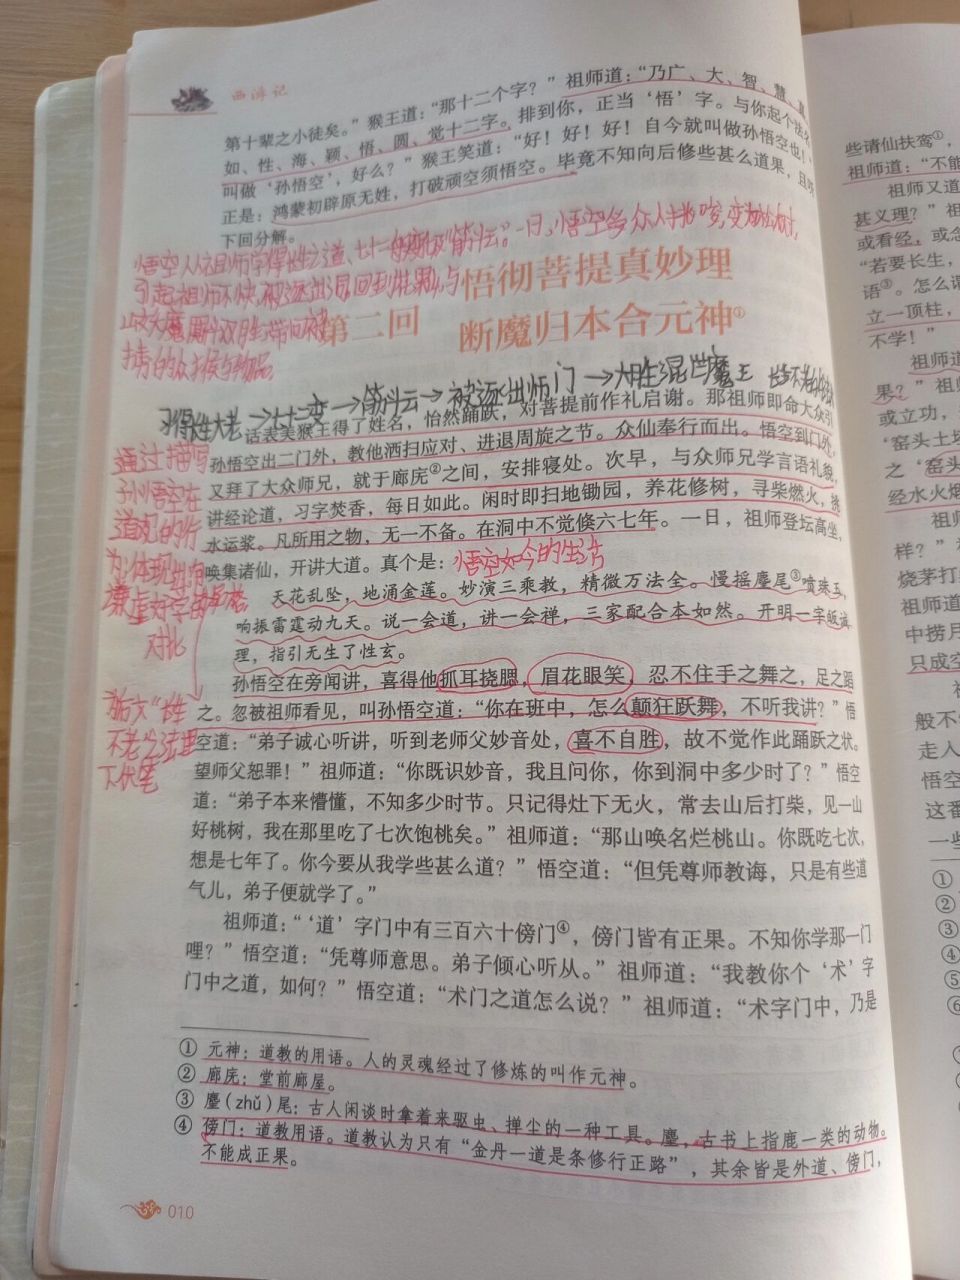 西游记
第十辈之小徒矣。”猴王道：“那十二个字？”祖师道：“乃广、大、智、慧、真、
如、性、海、颖、悟、圆、觉十二字。排到你，正当‘悟’字。与你起个法名
叫做‘孙悟空’，好么？”猴王笑道：“好！好！好！自今就叫做孙悟空也！”
正是：鸿蒙初辟原无姓，打破顽空须悟空。毕竟不知向后修些甚么道果，且听
下回分解。
悟空从祖师学得长生之道、七十二般变化及“筋斗云”。一日，悟空
引起祖师不快，被逐出洞，回到花果山，与
第二回
悟彻菩提真妙理
断魔归本合元神①
→七十二变→筋斗云→被逐出师门→大胜混世魔王
话表美猴王得了姓名，怡然踊跃，对菩提前作礼启谢。那祖师即命大众引
孙悟空出二门外，教他洒扫应对、进退周旋之节。众仙奉行而出。悟空到门外，
又拜了大众师兄，就于廊庑②之间，安排寝处。次早，与众师兄学言语礼貌，
讲经论道，习字焚香，每日如此。闲时即扫地锄园，养花修树，寻柴燃火，挑
水运浆。凡所用之物，无一不备。在洞中不觉倏六七年。一日，祖师登坛高坐，
唤集诸仙，开讲大道。真个是：
悟空如今的生活
天花乱坠，地涌金莲。妙演三乘教，精微万法全。慢摇麈尾③喷珠玉，
响振雷霆动九天。说一会道，讲一会禅，三家配合本如然。开明一字皈诚
理，指引无生了性玄。
通过描写
孙悟空在
道观的行
为，体现出他
对比
为后文“长生
不老”之法埋
下伏笔
孙悟空在旁闻讲，喜得他抓耳挠腮，眉花眼笑，忍不住手之舞之，足之蹈
之。忽被祖师看见，叫孙悟空道：“你在班中，怎么颠狂跃舞，不听我讲？”悟
空道：“弟子诚心听讲，听到老师父妙音处，喜不自胜，故不觉作此踊跃之状。
望师父恕罪！”祖师道：“你既识妙音，我且问你，你到洞中多少时了？”悟空
道：“弟子本来懵懂，不知多少时节。只记得灶下无火，常去山后打柴，见一山
好桃树，我在那里吃了七次饱桃矣。”祖师道：“那山唤名烂桃山。你既吃七次，
想是七年了。你今要从我学些甚么道？”悟空道：“但凭尊师教诲，只是有些道
气儿，弟子便就学了。”
祖师道：“‘道’字门中有三百六十傍门④，傍门皆有正果。不知你学那一门
哩？”悟空道：“凭尊师意思。弟子倾心听从。”祖师道：“我教你个‘术’字
门中之道，如何？”悟空道：“术门之道怎么说？”祖师道：“术字门中，乃是
① 元神：道教的用语。人的灵魂经过了修炼的叫作元神。
② 廊庑：堂前廊屋。
③ 麈（zhǔ）尾：古人闲谈时拿着来驱虫、掸尘的一种工具。麈，古书上指鹿一类的动物。
④ 傍门：道教用语。道教认为只有“金丹一道是条修行正路”，其余皆是外道、傍门，
不能成正果。
010
些请仙扶鸾①，
祖师道：“不能
祖师又道
甚义理？”祖
或看经，或念
“若要长生，
语③。怎么谓
立一顶柱，
不学！”
祖师道
果？”祖
或立功，
‘窑头土坯
之‘窑头
经水火煅
祖师
样？”
烧茅打
祖师道
中捞月
只成空
般不
走入
悟空
这番
一些
①
②
③
④
⑤
⑥